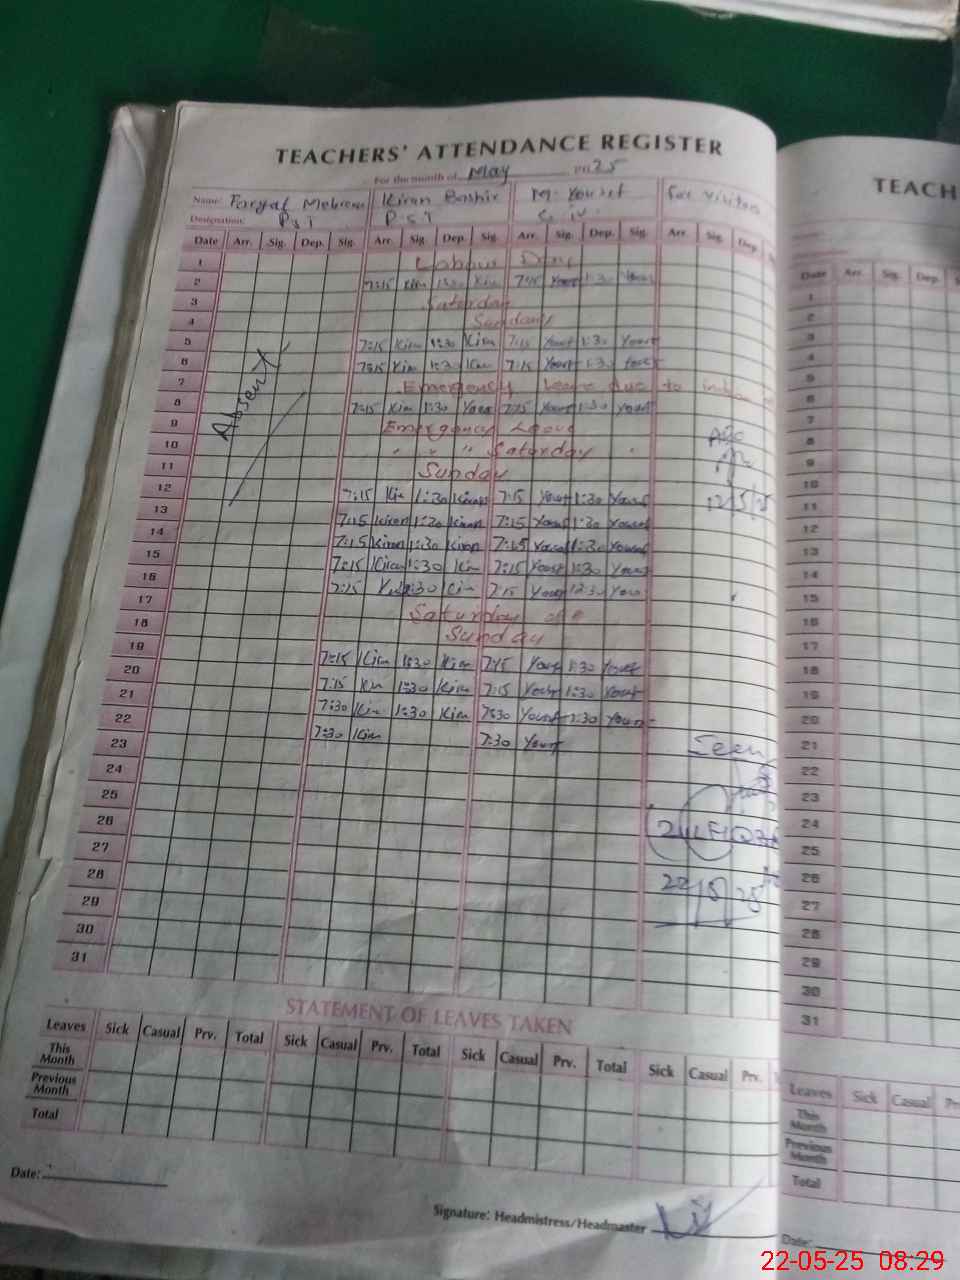 TEACHERS' ATTENDANCE REGISTER
TEACH
For the month of May 2025
Name: Faryal Kiran Bashir M. Yousaf For Visitor
Designation: PST P.S.T
Date Arr. Sig. Dep. Sig. Arr. Sig. Dep. Sig. Arr. Sig. Dep. Sig. Arr. Sig. Dep.
Date Arr. Sig. Dep.
1 Labour Day
2 7:15 Kiran 1:30 Kiran 7:15 Yousf 1:30 Yousf
3 Saturday
4 Sunday
5 7:15 Kiran 1:30 Kiran 7:15 Yousf 1:30 Yousf
6 7:15 Kiran 1:30 Kiran 7:15 Yousf 1:30 Yousf
Absent
7 Emergency Leave due to
8 7:15 Kiran 1:30 7:15 Yousf 1:30 Yousf
9 Emergency Leave
10 " " " Saturday "
11 Sunday
12 7:15 Kiran 1:30 Kiran 7:15 Yousf 1:30 Yousf
12/5/25
13 7:15 Kiran 1:30 Kiran 7:15 Yousf 1:30 Yousf
14 7:15 Kiran 1:30 Kiran 7:15 Yousf 1:30 Yousf
15 7:15 Kiran 1:30 Kiran 7:15 Yousf 1:30 Yousf
16 7:15 Kiran 7:15 Yousf 12:30 Yousf
17 Saturday
18 Sunday
19 7:15 Kiran 1:30 Kiran 7:15 Yousf 1:30 Yousf
20 7:15 Kiran 1:30 Kiran 7:15 Yousf 1:30 Yousf
21 7:30 Kiran 1:30 Kiran 7:30 Yousf 1:30 Yousf
22 7:30 Kiran 7:30 Yousf
23
Seen
24
25
26
27
28
22/5/25
29
30
31
1
2
3
4
5
6
7
8
9
10
11
12
13
14
15
16
17
18
19
20
21
22
23
24
25
26
27
28
29
30
31
STATEMENT OF LEAVES TAKEN
Leaves Sick Casual Prv. Total Sick Casual Prv. Total Sick Casual Prv. Total Sick Casual Prv.
This Month
Previous Month
Total
Date:
Signature: Headmistress/Headmaster
Leaves Sick Casual
This Month
Previous Month
Total
Date:
22-05-25 08:29